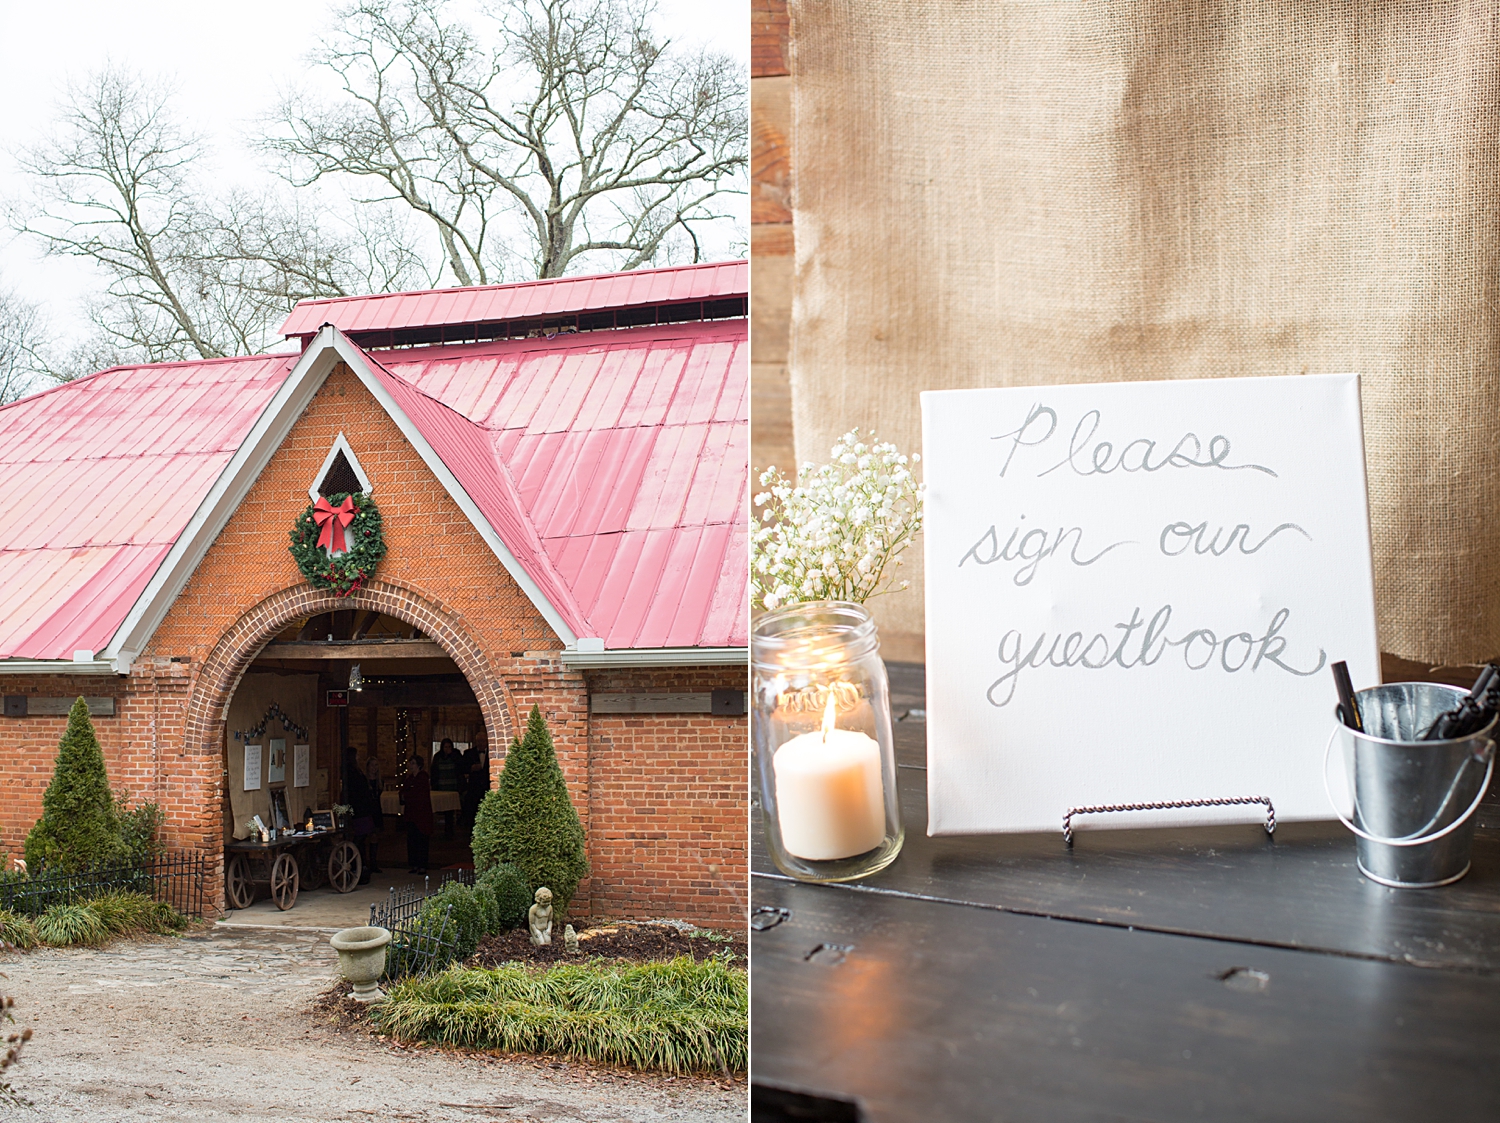 Please
sign our
guestbook